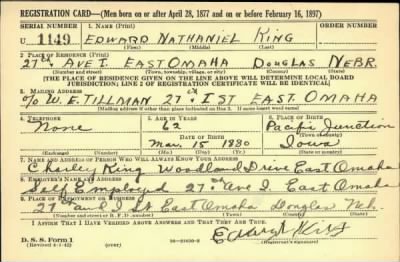 REGISTRATION CARD—(Men born on or after April 28, 1877 and on or before February 16, 1897)
SERIAL NUMBER 1. NAME (Print) ORDER NUMBER
U 1149 EDWARD NATHANIEL KING
(First) (Middle) (Last)
2. PLACE OF RESIDENCE (Print)
27th AVE I EAST OMAHA DOUGLAS NEBR.
(Number and street) (Town, township, village, or city) (County) (State)
[THE PLACE OF RESIDENCE GIVEN ON THE LINE ABOVE WILL DETERMINE LOCAL BOARD
JURISDICTION; LINE 2 OF REGISTRATION CERTIFICATE WILL BE IDENTICAL]
3. MAILING ADDRESS
c/o W.E. TILLMAN 27 & I ST EAST OMAHA
[Mailing address if other than place indicated on line 2. If same insert word same]
4. TELEPHONE 5. AGE IN YEARS 6. PLACE OF BIRTH
None 62 Pacific Junction
DATE OF BIRTH
Mar. 15 1880 Iowa
(Mo.) (Day) (Yr.) (State or country)
7. NAME AND ADDRESS OF PERSON WHO WILL ALWAYS KNOW YOUR ADDRESS
Charley King Woodland Drive East Omaha
8. EMPLOYER'S NAME AND ADDRESS
Self Employed 27th Ave I. East Omaha
9. PLACE OF EMPLOYMENT OR BUSINESS
27 and I St East Omaha Douglas Neb.
(Number and street or R. F. D. number) (Town) (County) (State)
I AFFIRM THAT I HAVE VERIFIED ABOVE ANSWERS AND THAT THEY ARE TRUE.
D. S. S. Form 1
(Revised 4-1-42) (over)